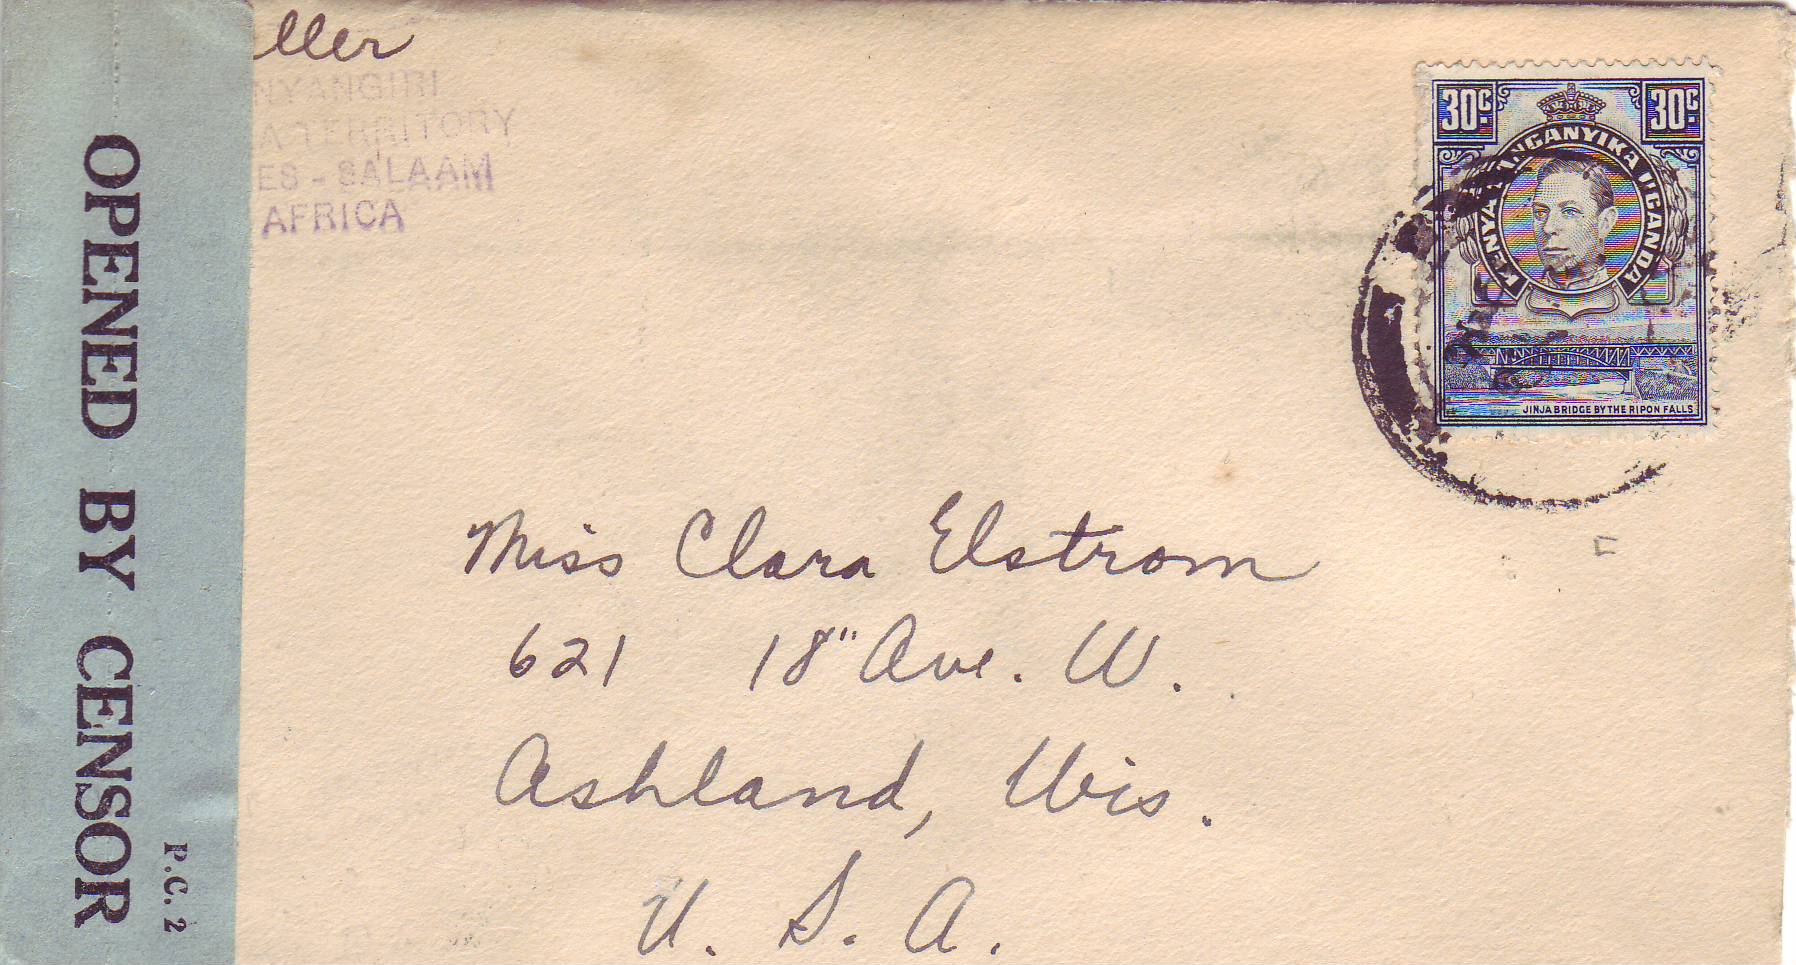 OPENED BY CENSOR
P.C. 2
ller
NYANGIRI
A TERRITORY
ES - SALAAM
AFRICA
30C 30C
KENYA TANGANYIKA UGANDA
JINJA BRIDGE BY THE RIPON FALLS
Miss Clara Elstrom
621 18" Ave. W.
Ashland, Wis.
U. S. A.